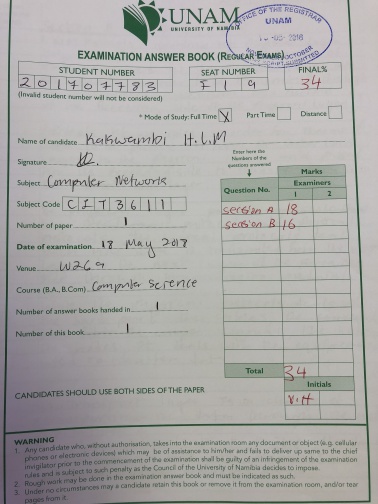 UNAM
UNIVERSITY OF NAMIBIA
OFFICE OF THE REGISTRAR
UNAM
2018
OCTOBER
EXAMINATION ANSWER BOOK (REGULAR EXAMS)
STUDENT NUMBER
201707783
(Invalid student number will not be considered)
SEAT NUMBER
F19
FINAL%
34
* Mode of Study: Full Time X Part Time Distance
Name of candidate Kakwambi H.L.M
Signature
Subject Computer Network
Subject Code CIT3611
Number of paper 1
Date of examination 18 May 2018
Venue W269
Course (B.A., B.Com) Computer Science
Number of answer books handed in 1
Number of this book 1
Enter here the
Numbers of the
questions answered
Question No.
Marks
Examiners
1 2
section A 18
section B 16
Total 34
Initials
V.H
CANDIDATES SHOULD USE BOTH SIDES OF THE PAPER
WARNING
1. Any candidate who, without authorisation, takes into the examination room any document or object (e.g. cellular
phones or electronic devices) which may be of assistance to him/her and fails to deliver up same to the chief
invigilator prior to the commencement of the examination shall be guilty of an infringement of the examination
rules and is subject to such penalty as the Council of the University of Namibia decides to impose.
2. Rough work may be done in the examination answer book and must be indicated as such.
3. Under no circumstances may a candidate retain this book or remove it from the examination room, and/or tear
pages from it.